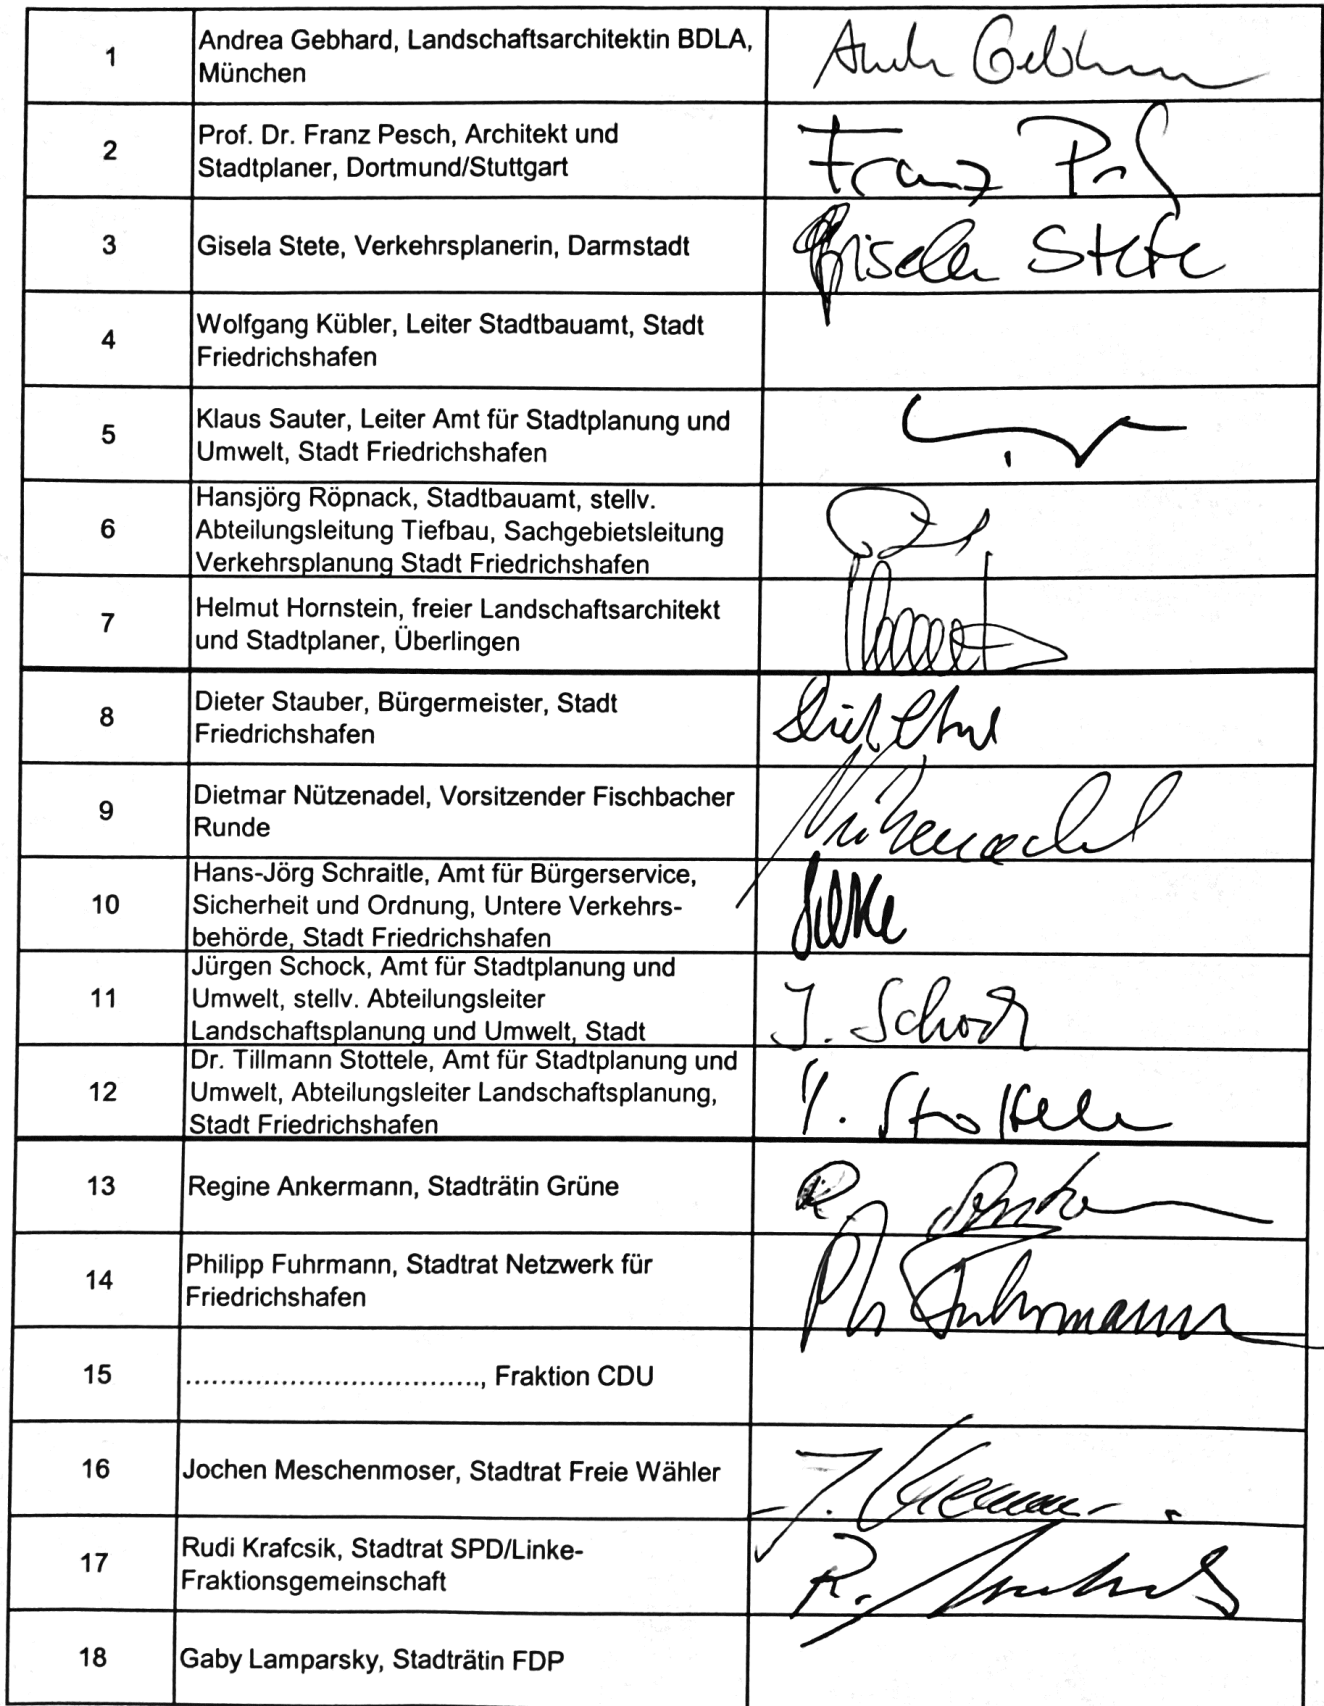 1
Andrea Gebhard, Landschaftsarchitektin BDLA,
München
Gebhard
2
Prof. Dr. Franz Pesch, Architekt und
Stadtplaner, Dortmund/Stuttgart
Franz
3
Gisela Stete, Verkehrsplanerin, Darmstadt
Gisela Stete
4
Wolfgang Kübler, Leiter Stadtbauamt, Stadt
Friedrichshafen
5
Klaus Sauter, Leiter Amt für Stadtplanung und
Umwelt, Stadt Friedrichshafen
6
Hansjörg Röpnack, Stadtbauamt, stellv.
Abteilungsleitung Tiefbau, Sachgebietsleitung
Verkehrsplanung Stadt Friedrichshafen
7
Helmut Hornstein, freier Landschaftsarchitekt
und Stadtplaner, Überlingen
8
Dieter Stauber, Bürgermeister, Stadt
Friedrichshafen
9
Dietmar Nützenadel, Vorsitzender Fischbacher
Runde
Nützenadel
10
Hans-Jörg Schraitle, Amt für Bürgerservice,
Sicherheit und Ordnung, Untere Verkehrs-
behörde, Stadt Friedrichshafen
11
Jürgen Schock, Amt für Stadtplanung und
Umwelt, stellv. Abteilungsleiter
Landschaftsplanung und Umwelt, Stadt
J. Schock
12
Dr. Tillmann Stottele, Amt für Stadtplanung und
Umwelt, Abteilungsleiter Landschaftsplanung,
Stadt Friedrichshafen
T. Stottele
13
Regine Ankermann, Stadträtin Grüne
R.
14
Philipp Fuhrmann, Stadtrat Netzwerk für
Friedrichshafen
Ph Fuhrmann
15
................................., Fraktion CDU
16
Jochen Meschenmoser, Stadtrat Freie Wähler
J.
17
Rudi Krafcsik, Stadtrat SPD/Linke-
Fraktionsgemeinschaft
R.
18
Gaby Lamparsky, Stadträtin FDP